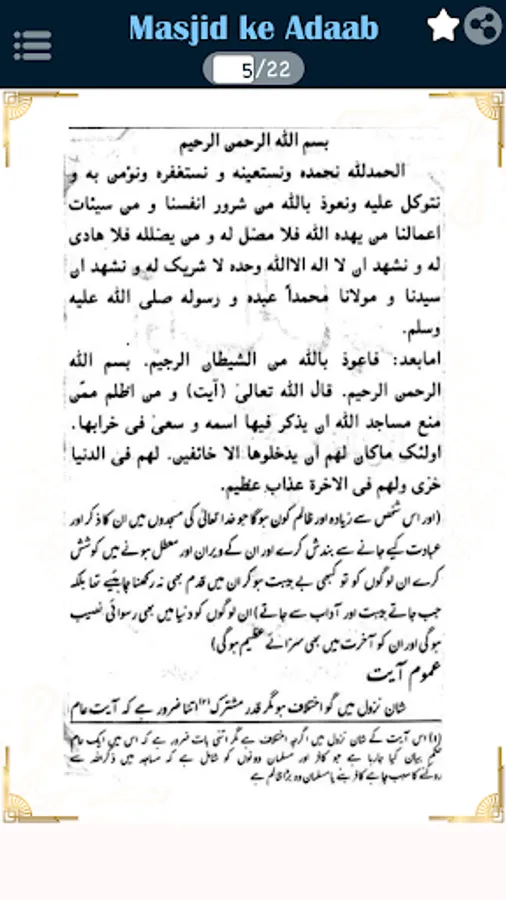 Masjid ke Adaab
5/22
بسم الله الرحمن الرحيم
الحمدلله نحمده ونستعينه و نستغفره ونؤمن به و
نتوكل عليه ونعوذ بالله من شرور انفسنا و من سيئات
اعمالنا من يهده الله فلا مضل له و من يضلله فلا هادى
له و نشهد ان لا اله الاالله وحده لا شريک له و نشهد ان
سيدنا و مولانا محمداً عبده و رسوله صلى الله عليه
وسلم.
امابعد: فاعوذ بالله من الشيطان الرجيم. بسم الله
الرحمن الرحيم. قال الله تعالىٰ (آيت) و من اظلم ممّن
منع مساجد الله ان يذكر فيها اسمه و سعىٰ فى خرابها.
اولئک ماكان لهم أن يدخلوها الا خائفين. لهم فى الدنيا
خزى ولهم فى الاخرة عذاب عظيم.
(اور اس شخص سے زیادہ اور ظالم کون ہوگا جو خدا تعالیٰ کی مسجدوں میں ان کا ذکر اور
عبادت کیے جانے سے بندش کرے اور ان کے ویران اور معطل ہونے میں کوشش
کرے ان لوگوں کو تو کبھی بے ہیبت ہوکر ان میں قدم بھی نہ رکھنا چاہئیے تھا بلکہ
جب جاتے ہیبت اور آداب سے جاتے) ان لوگوں کو دنیا میں بھی رسوائی نصیب
ہوگی اور ان کو آخرت میں بھی سزائے عظیم ہوگی)
عموم آیت
شان نزول میں گو اختلاف ہو مگر قدر مشترک (۱) اتنا ضرور ہے کہ آیت عام
(۱) اس آیت کے شان نزول میں اگرچہ اختلاف ہے مگر اتنی بات ضرور ہے کہ اس میں ایک عام
حکم بیان کیا جارہا ہے جو کافر اور مسلمان دونوں کو شامل ہے کہ مساجد میں ذکر اللہ سے
روکنے کا سبب چاہے کافر بنے یا مسلمان وہ بڑا ظالم ہے